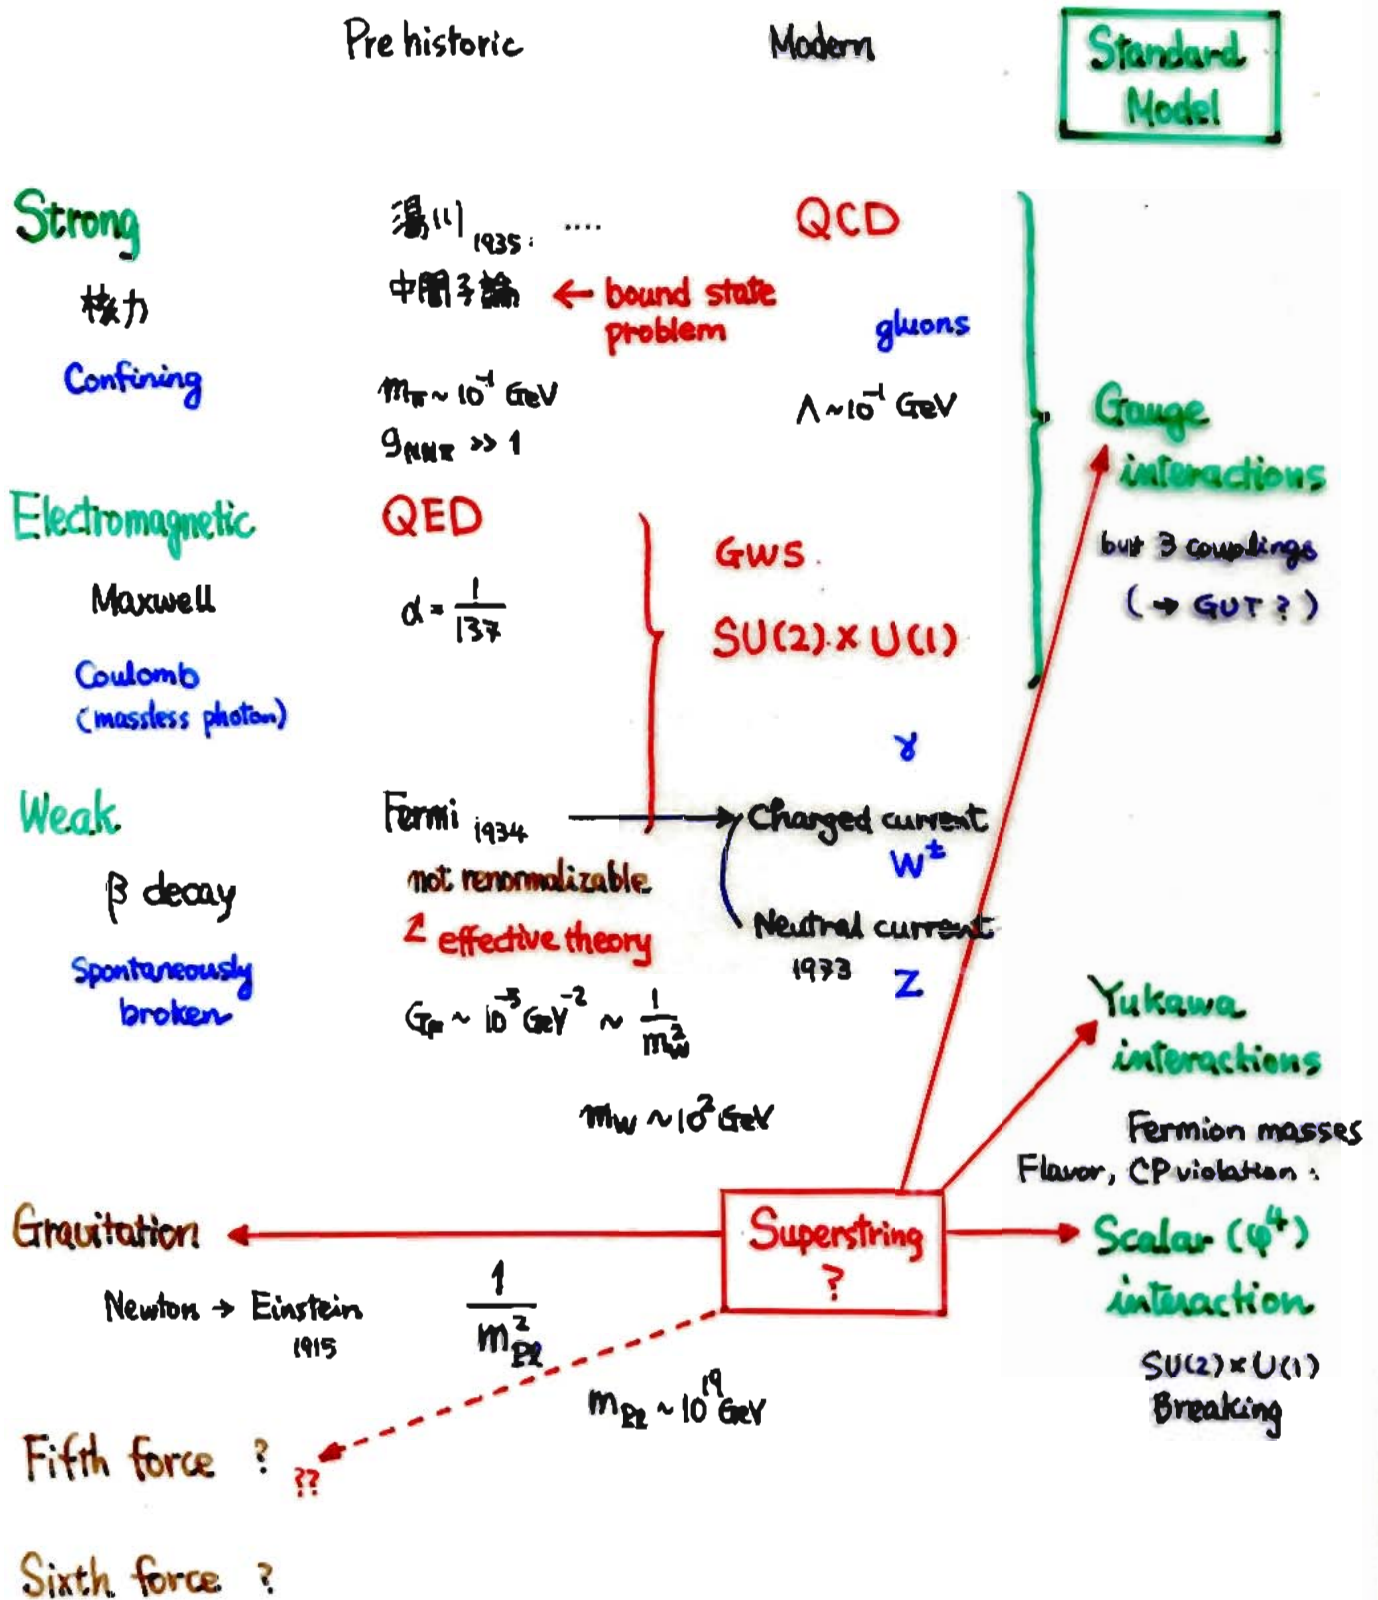 Pre historic
Modern
Standard
Model
Strong
核力
Confining
湯川 1935. ....
中間子論
← bound state
problem
mπ ~ 10⁻¹ GeV
gNNπ >> 1
QCD
gluons
Λ ~ 10⁻¹ GeV
Gauge
interactions
but 3 couplings
(→ GUT ?)
Electromagnetic
Maxwell
Coulomb
(massless photon)
QED
α = 1/137
GWS
SU(2) × U(1)
γ
Weak
β decay
Spontaneously
broken
Fermi 1934
not renormalizable
effective theory
G_F ~ 10⁻⁵ GeV⁻² ~ 1/m_W²
m_W ~ 10² GeV
Charged current
W±
Neutral current
1973
Z
Yukawa
interactions
Fermion masses
Flavor, CP violation :
Gravitation
Newton → Einstein
1915
1/m_Pl²
m_Pl ~ 10¹⁹ GeV
Superstring
?
Scalar (φ⁴)
interaction
SU(2) × U(1)
Breaking
Fifth force ?
??
Sixth force ?